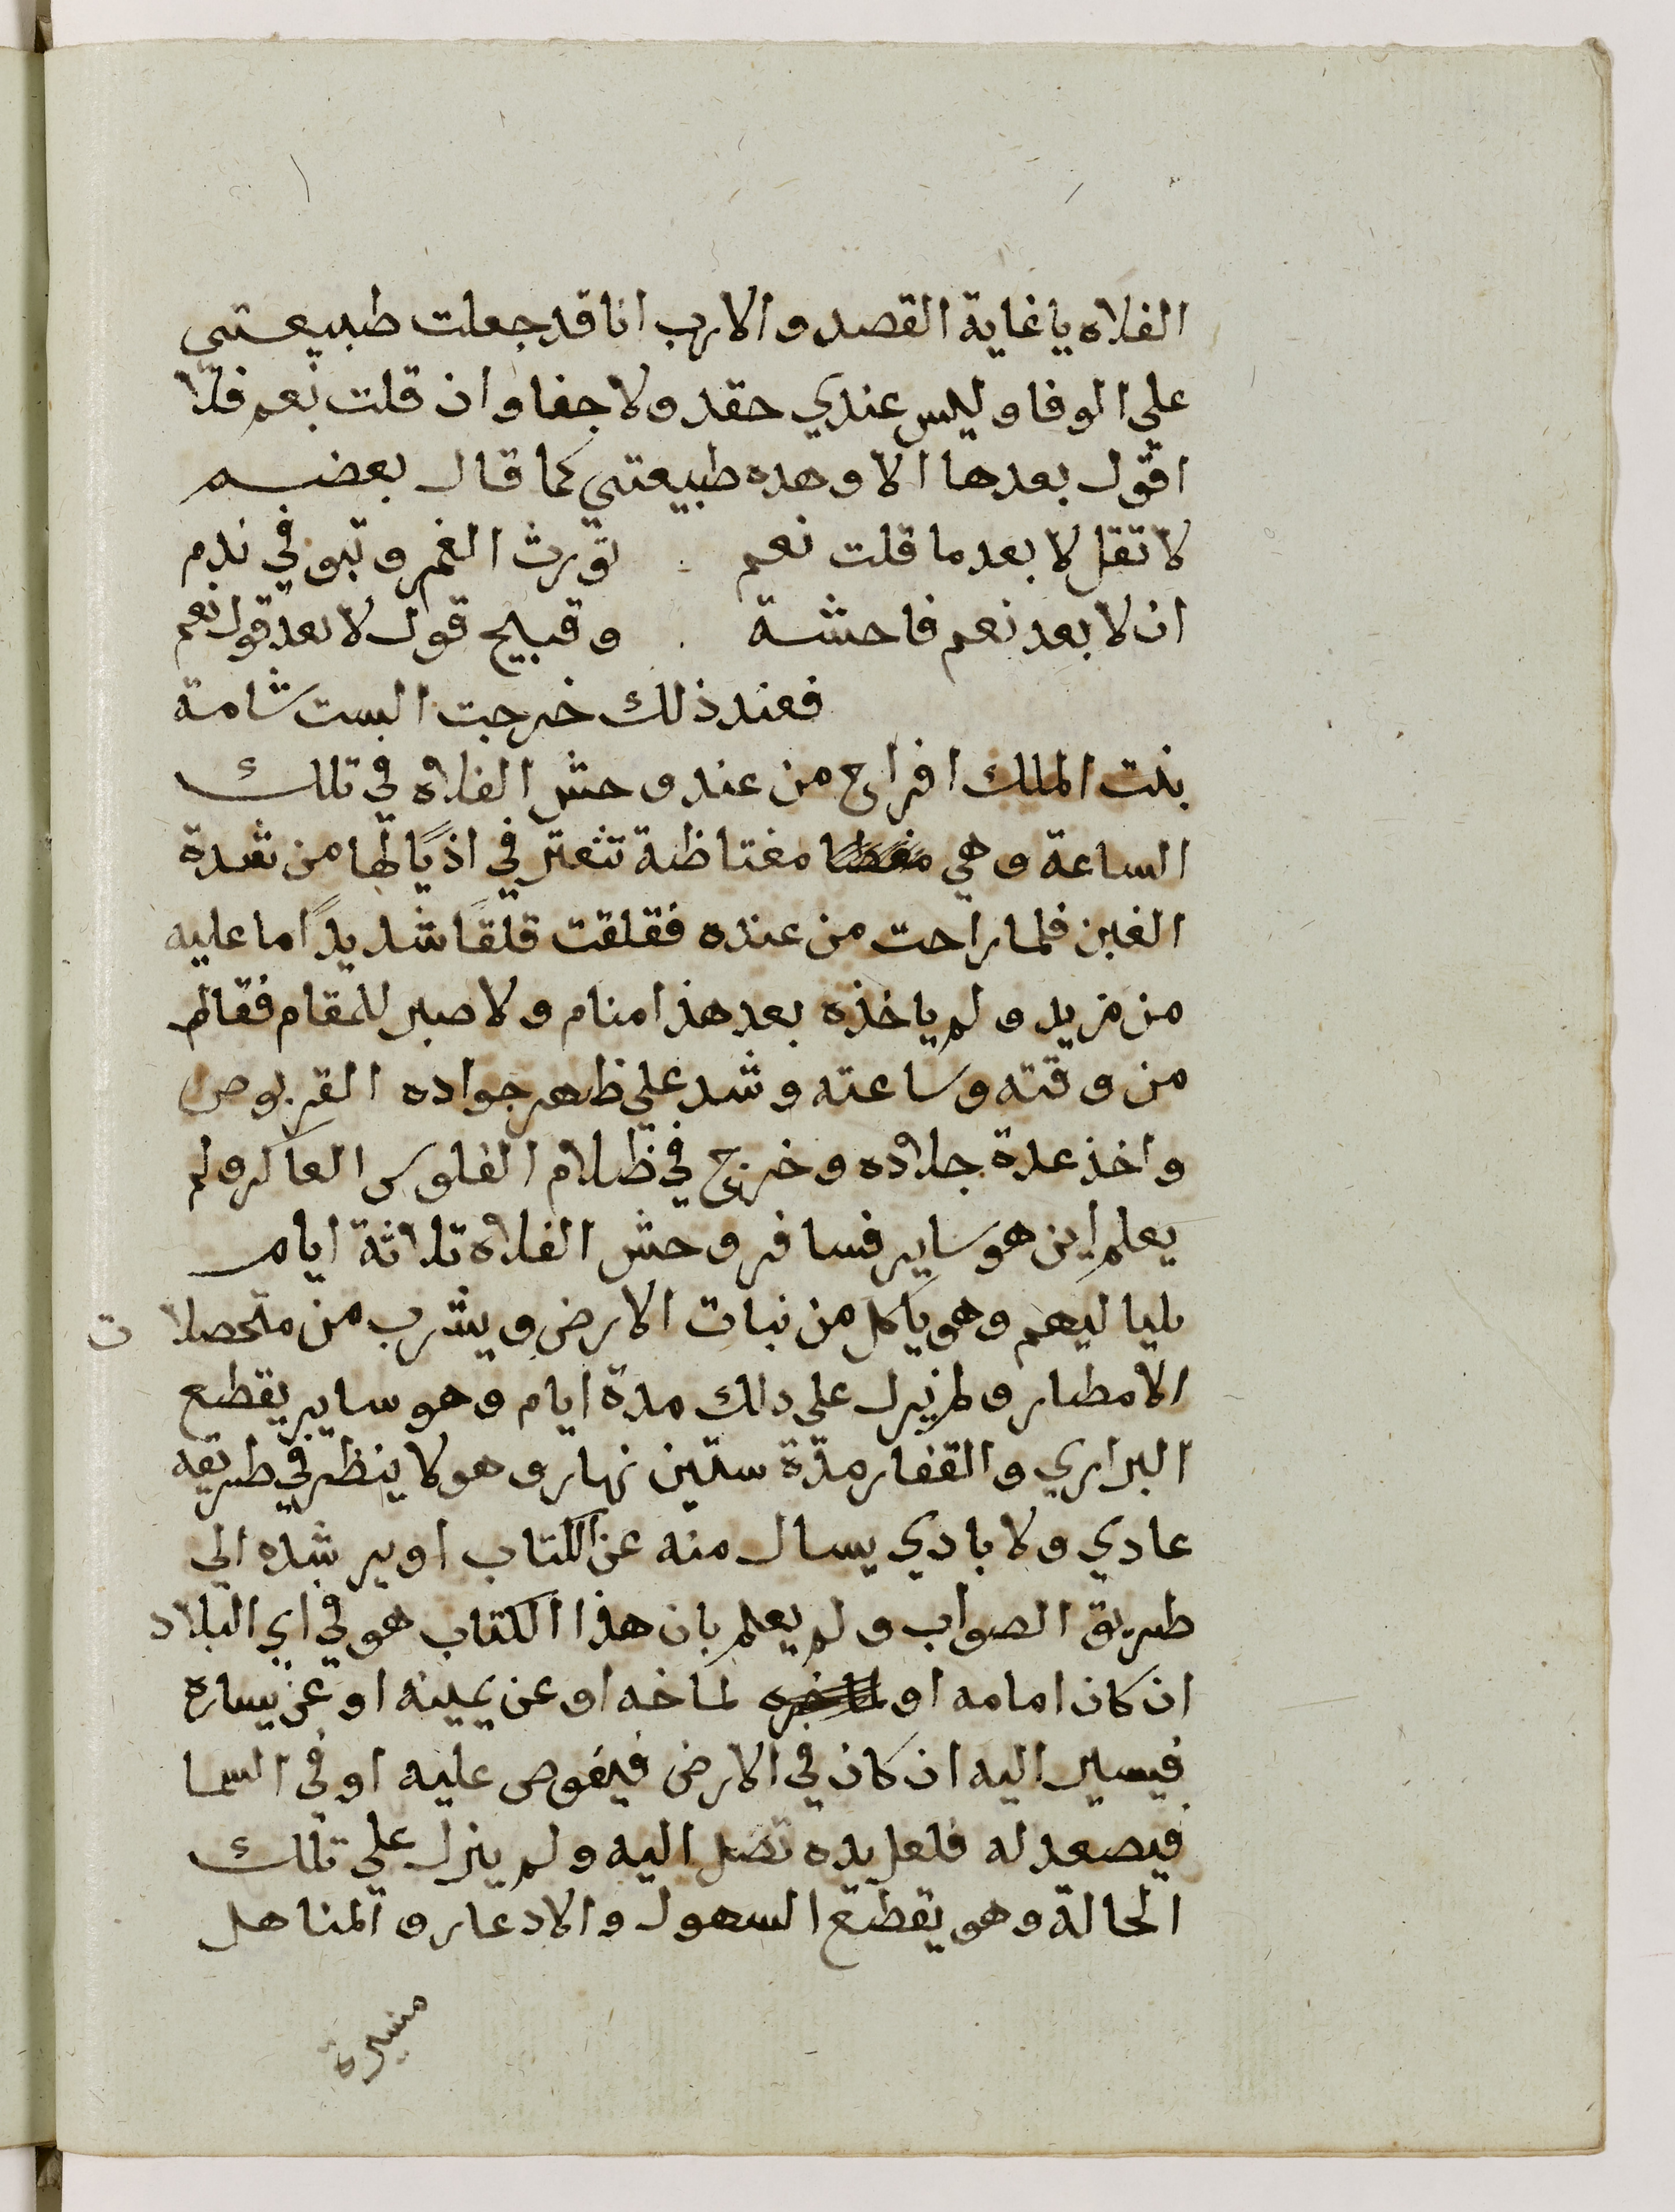 الفلاه يا غاية القصد والارب انا قد جعلت طبيعتي
علي الوفا وليس عندي حقد ولا جفا وان قلت نعم فلا
اقول بعدها الا وهده طبيعتي كما قال بعضهم
لا تقل لا بعد ما قلت نعم . تورث الغم وتبو في ندم
ان لا بعد نعم فاحشة . وقبيح قول لا بعد قول نعم
فعند ذلك خرجت الست شامة
بنت الملك افراح من عند وحش الفلاه في تلك
الساعة وهي مغتاظة تتعتر في اذيالها من شدة
الغبن فلما راحت من عنده فقلقت قلقًا شديدًا ما عليه
من مزيد ولم ياخذه بعد هذا منام ولا صبر للمقام فقام
من وقته وساعته وشد علي ظهر جواده القربوص
واخذ عدة جلاده وخرج في ظلام الغلوس العاكر ولم
يعلم اين هو ساير فسافر وحش الفلاه تلاثة ايام
بلياليهم وهو ياكل من نبات الارض ويشرب من متحصلات
الامطار ولم يزل علي دلك مدة ايام وهو ساير يقطع
البراري والقفار مدة ستين نهار وهو لا ينظر في طريقه
عادي ولا بادي يسال منه عن الكتاب او يرشده الي
طريق الصواب ولم يعلم بان هذا الكتاب هو في اي البلاد
ان كان امامه او لماخه او عن يمينه او عن يساره
فيسير اليه ان كان في الارض فيغوص عليه او في السما
فيصعد له فلعل يده تصل اليه ولم يزل علي تلك
الحالة وهو يقطع السهول والادعار والمناهل
مسيرة